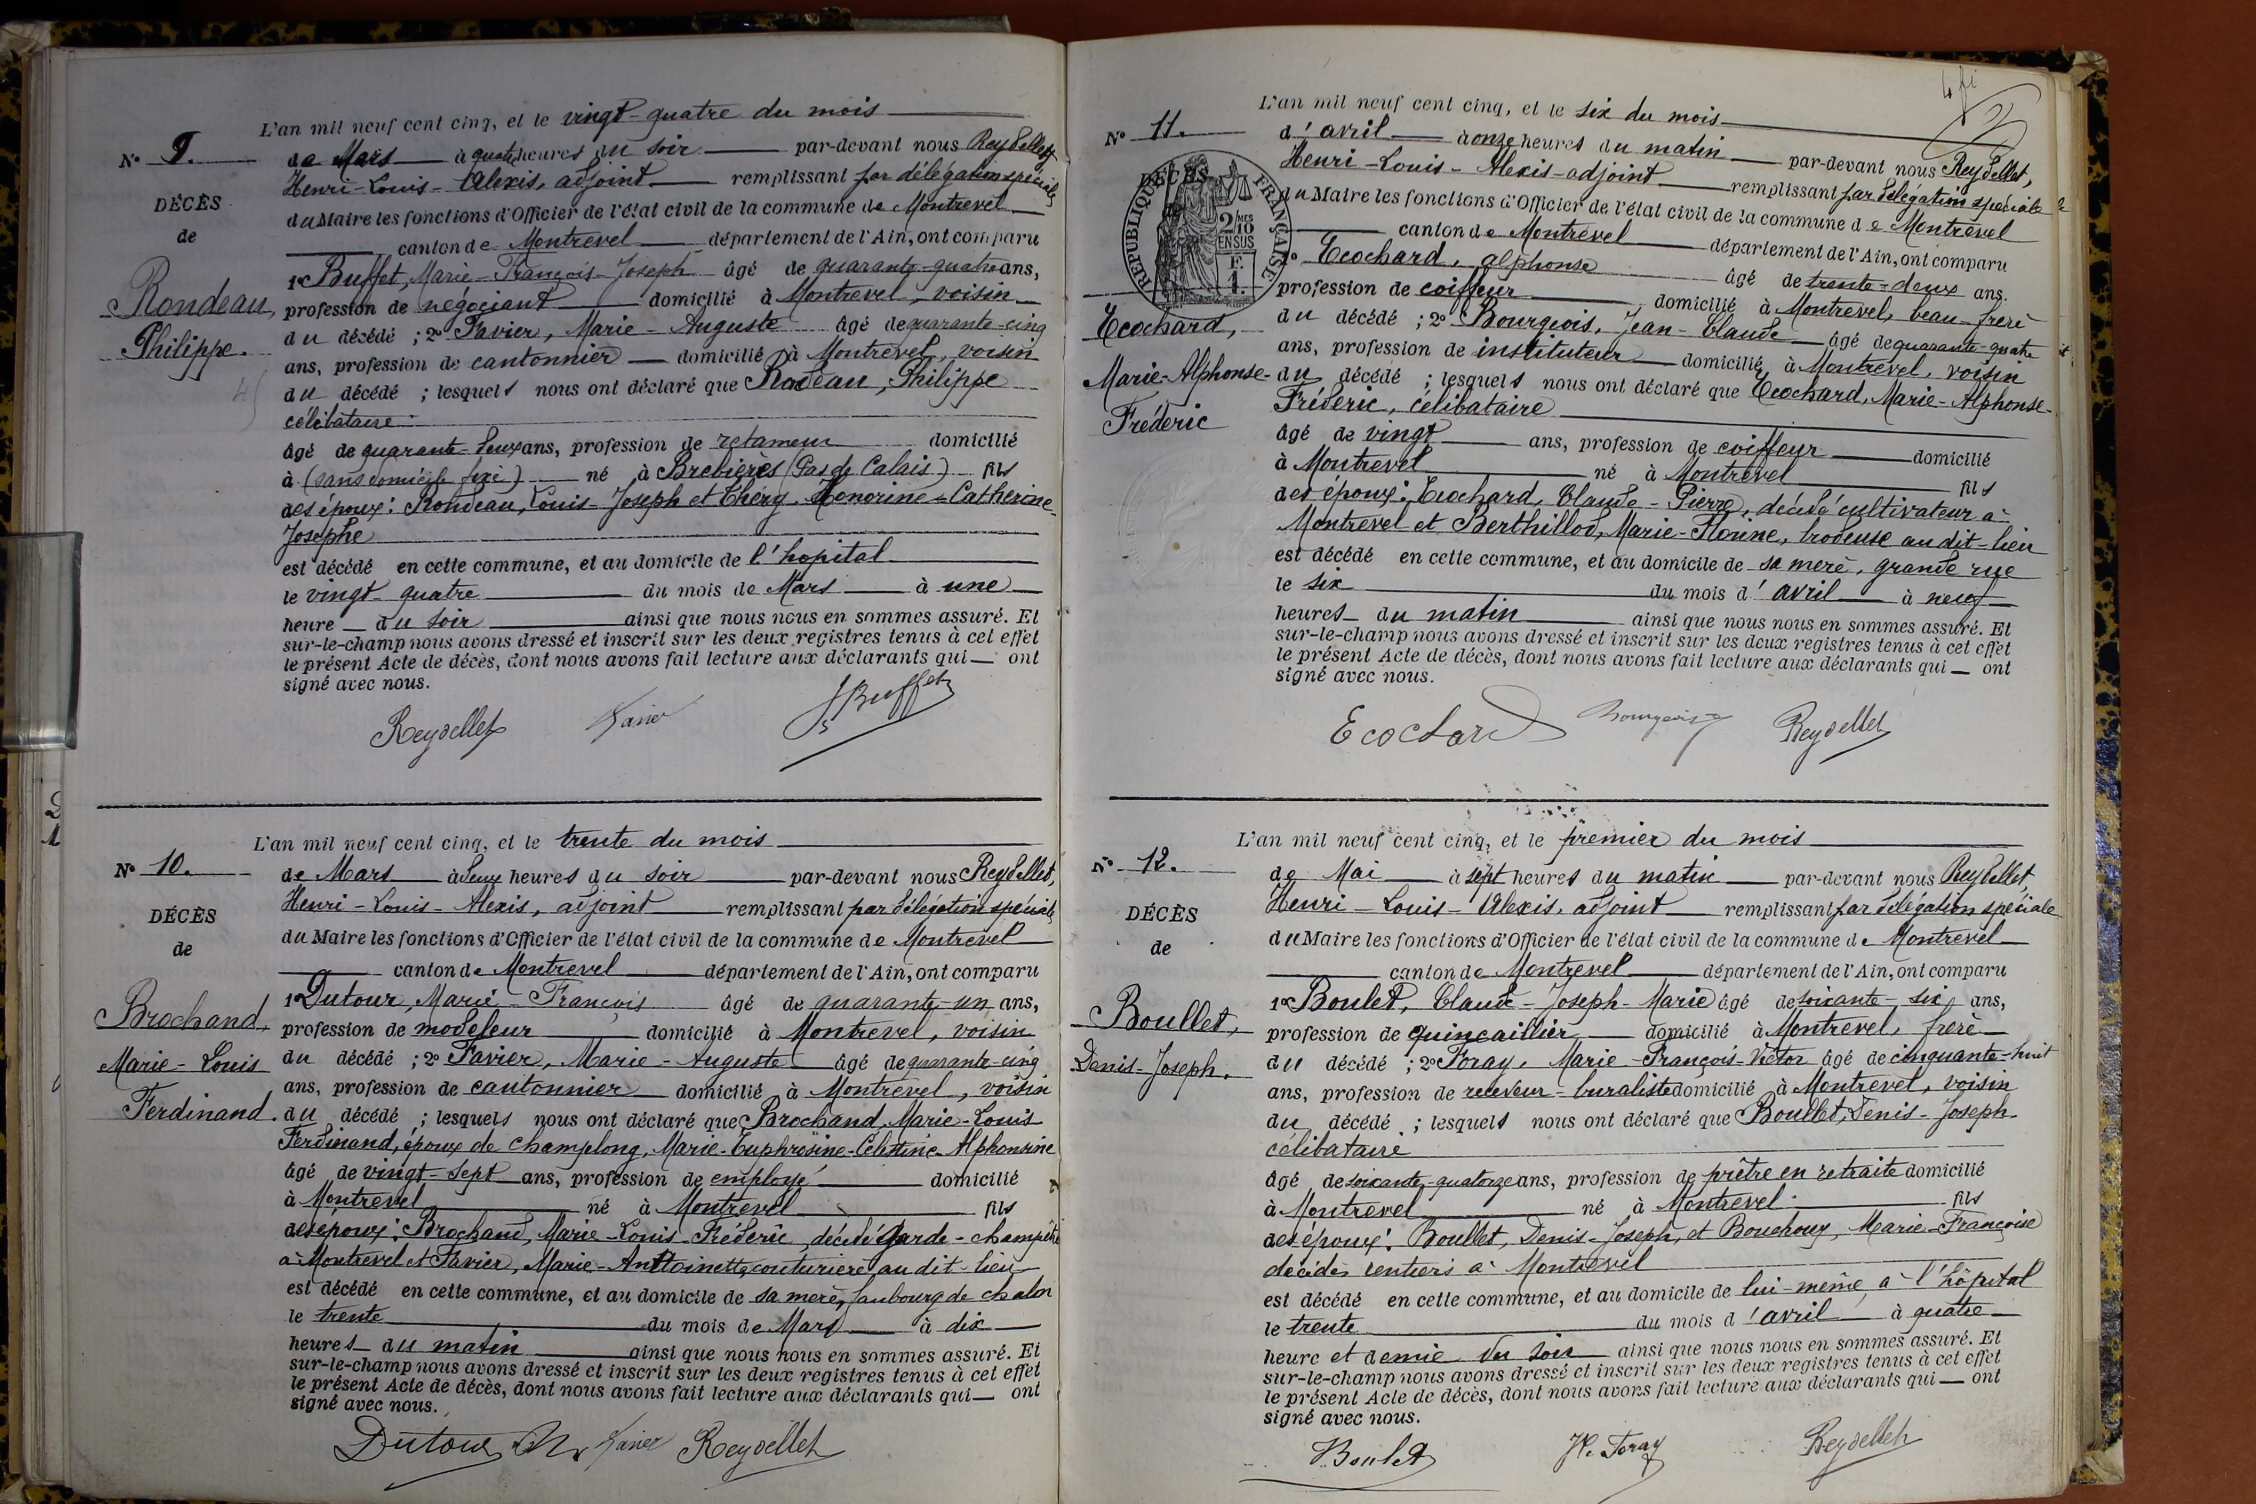 L'an mil neuf cent cinq, et le vingt-quatre du mois
No 9.
de Mars à quatre heures du soir par-devant nous Reydellet,
Henri-Louis-Alexis, adjoint remplissant par délégation spéciale
DÉCÈS
du Maire les fonctions d'Officier de l'état civil de la commune de Montrevel
de
canton de Montrevel département de l'Ain, ont comparu
1o Buffet, Marie-François-Joseph âgé de quarante-quatre ans,
Rondeau,
profession de négociant domicilié à Montrevel, voisin
du décédé ; 2o Favier, Marie-Auguste âgé de quarante-cinq
Philippe.
ans, profession de cantonnier domicilié à Montrevel, voisin
du décédé ; lesquels nous ont déclaré que Rondeau, Philippe
célibataire
âgé de quarante-deux ans, profession de rétameur domicilié
à (sans domicile fixe) né à Brebières (Pas de Calais) fils
des époux : Rondeau, Louis-Joseph et Théry, Honorine-Catherine-
Josephe
est décédé en cette commune, et au domicile de l'hopital
le vingt-quatre du mois de Mars à une
heure du soir ainsi que nous nous en sommes assuré. Et
sur-le-champ nous avons dressé et inscrit sur les deux registres tenus à cet effet
le présent Acte de décès, dont nous avons fait lecture aux déclarants qui ont
signé avec nous.
Reydellet Favier Buffet
L'an mil neuf cent cinq, et le trente du mois
No 10.
de Mars à deux heures du soir par-devant nous Reydellet,
Henri-Louis-Alexis, adjoint remplissant par délégation spéciale
DÉCÈS
du Maire les fonctions d'Officier de l'état civil de la commune de Montrevel
de
canton de Montrevel département de l'Ain, ont comparu
1o Dutour, Marie-François âgé de quarante-un ans,
Brochand,
profession de modeleur domicilié à Montrevel, voisin
du décédé ; 2o Favier, Marie-Auguste âgé de quarante-cinq
Marie-Louis
ans, profession de cantonnier domicilié à Montrevel, voisin
Ferdinand.
du décédé ; lesquels nous ont déclaré que Brochand, Marie-Louis
Ferdinand, époux de Champlong, Marie-Euphrosine-Célestine-Alphonsine
âgé de vingt-sept ans, profession de employé domicilié
à Montrevel né à Montrevel fils
des époux : Brochand, Marie-Louis-Fréderic, décédé garde-champêtre
à Montrevel et Favier, Marie-Antoinette couturière au dit lieu
est décédé en cette commune, et au domicile de sa mere, faubourg de chalon
le trente du mois de Mars à dix
heures du matin ainsi que nous nous en sommes assuré. Et
sur-le-champ nous avons dressé et inscrit sur les deux registres tenus à cet effet
le présent Acte de décès, dont nous avons fait lecture aux déclarants qui ont
signé avec nous.
Dutour Favier Reydellet
L'an mil neuf cent cinq, et le six du mois
No 11.
d'avril à onze heures du matin par-devant nous Reydellet,
Henri-Louis-Alexis-adjoint remplissant par délégation spéciale
DÉCÈS
RÉPUBLIQUE FRANÇAISE
2/10 MES EN SUS
F. 1.
du Maire les fonctions d'Officier de l'état civil de la commune de Montrevel
canton de Montrevel département de l'Ain, ont comparu
1o Ecochard, alphonse âgé de trente-deux ans.
profession de coiffeur domicilié à Montrevel, beau-frère
Ecochard,
du décédé ; 2o Bourgeois, Jean-Claude âgé de quarante-quatre
ans, profession de instituteur domicilié à Montrevel, voisin
Marie-Alphonse-
du décédé ; lesquels nous ont déclaré que Ecochard, Marie-Alphonse-
Fréderic
Fréderic, célibataire
âgé de vingt ans, profession de coiffeur domicilié
à Montrevel né à Montrevel fils
des époux : Ecochard, Claude-Pierre, décédé cultivateur à
Montrevel et Berthillod, Marie-Florine, brodeuse au dit-lieu
est décédé en cette commune, et au domicile de sa mere, grande rue
le six du mois d'avril à neuf
heures du matin ainsi que nous nous en sommes assuré. Et
sur-le-champ nous avons dressé et inscrit sur les deux registres tenus à cet effet
le présent Acte de décès, dont nous avons fait lecture aux déclarants qui ont
signé avec nous.
Ecochard Bourgeois Reydellet
L'an mil neuf cent cinq, et le premier du mois
No 12.
de Mai à sept heures du matin par-devant nous Reydellet,
Henri-Louis-Alexis, adjoint remplissant par délégation spéciale
DÉCÈS
du Maire les fonctions d'Officier de l'état civil de la commune de Montrevel
de
canton de Montrevel département de l'Ain, ont comparu
1o Boulet, Claude-Joseph-Marie âgé de soixante-six ans,
Boullet,
profession de quincaillier domicilié à Montrevel, frère
du décédé ; 2o Foray, Marie-François-Victor âgé de cinquante-huit
Denis-Joseph.
ans, profession de receveur-buraliste domicilié à Montrevel, voisin
du décédé ; lesquels nous ont déclaré que Boullet, Denis-Joseph
célibataire
âgé de soixante-quatorze ans, profession de prêtre en retraite domicilié
à Montrevel né à Montrevel fils
des époux : Boullet, Denis-Joseph, et Bouchoux, Marie-Françoise
décédés rentiers à Montrevel
est décédé en cette commune, et au domicile de lui-même à l'hôpital
le trente du mois d'avril à quatre
heure et demie du soir ainsi que nous nous en sommes assuré. Et
sur-le-champ nous avons dressé et inscrit sur les deux registres tenus à cet effet
le présent Acte de décès, dont nous avons fait lecture aux déclarants qui ont
signé avec nous.
Boulet Foray Reydellet